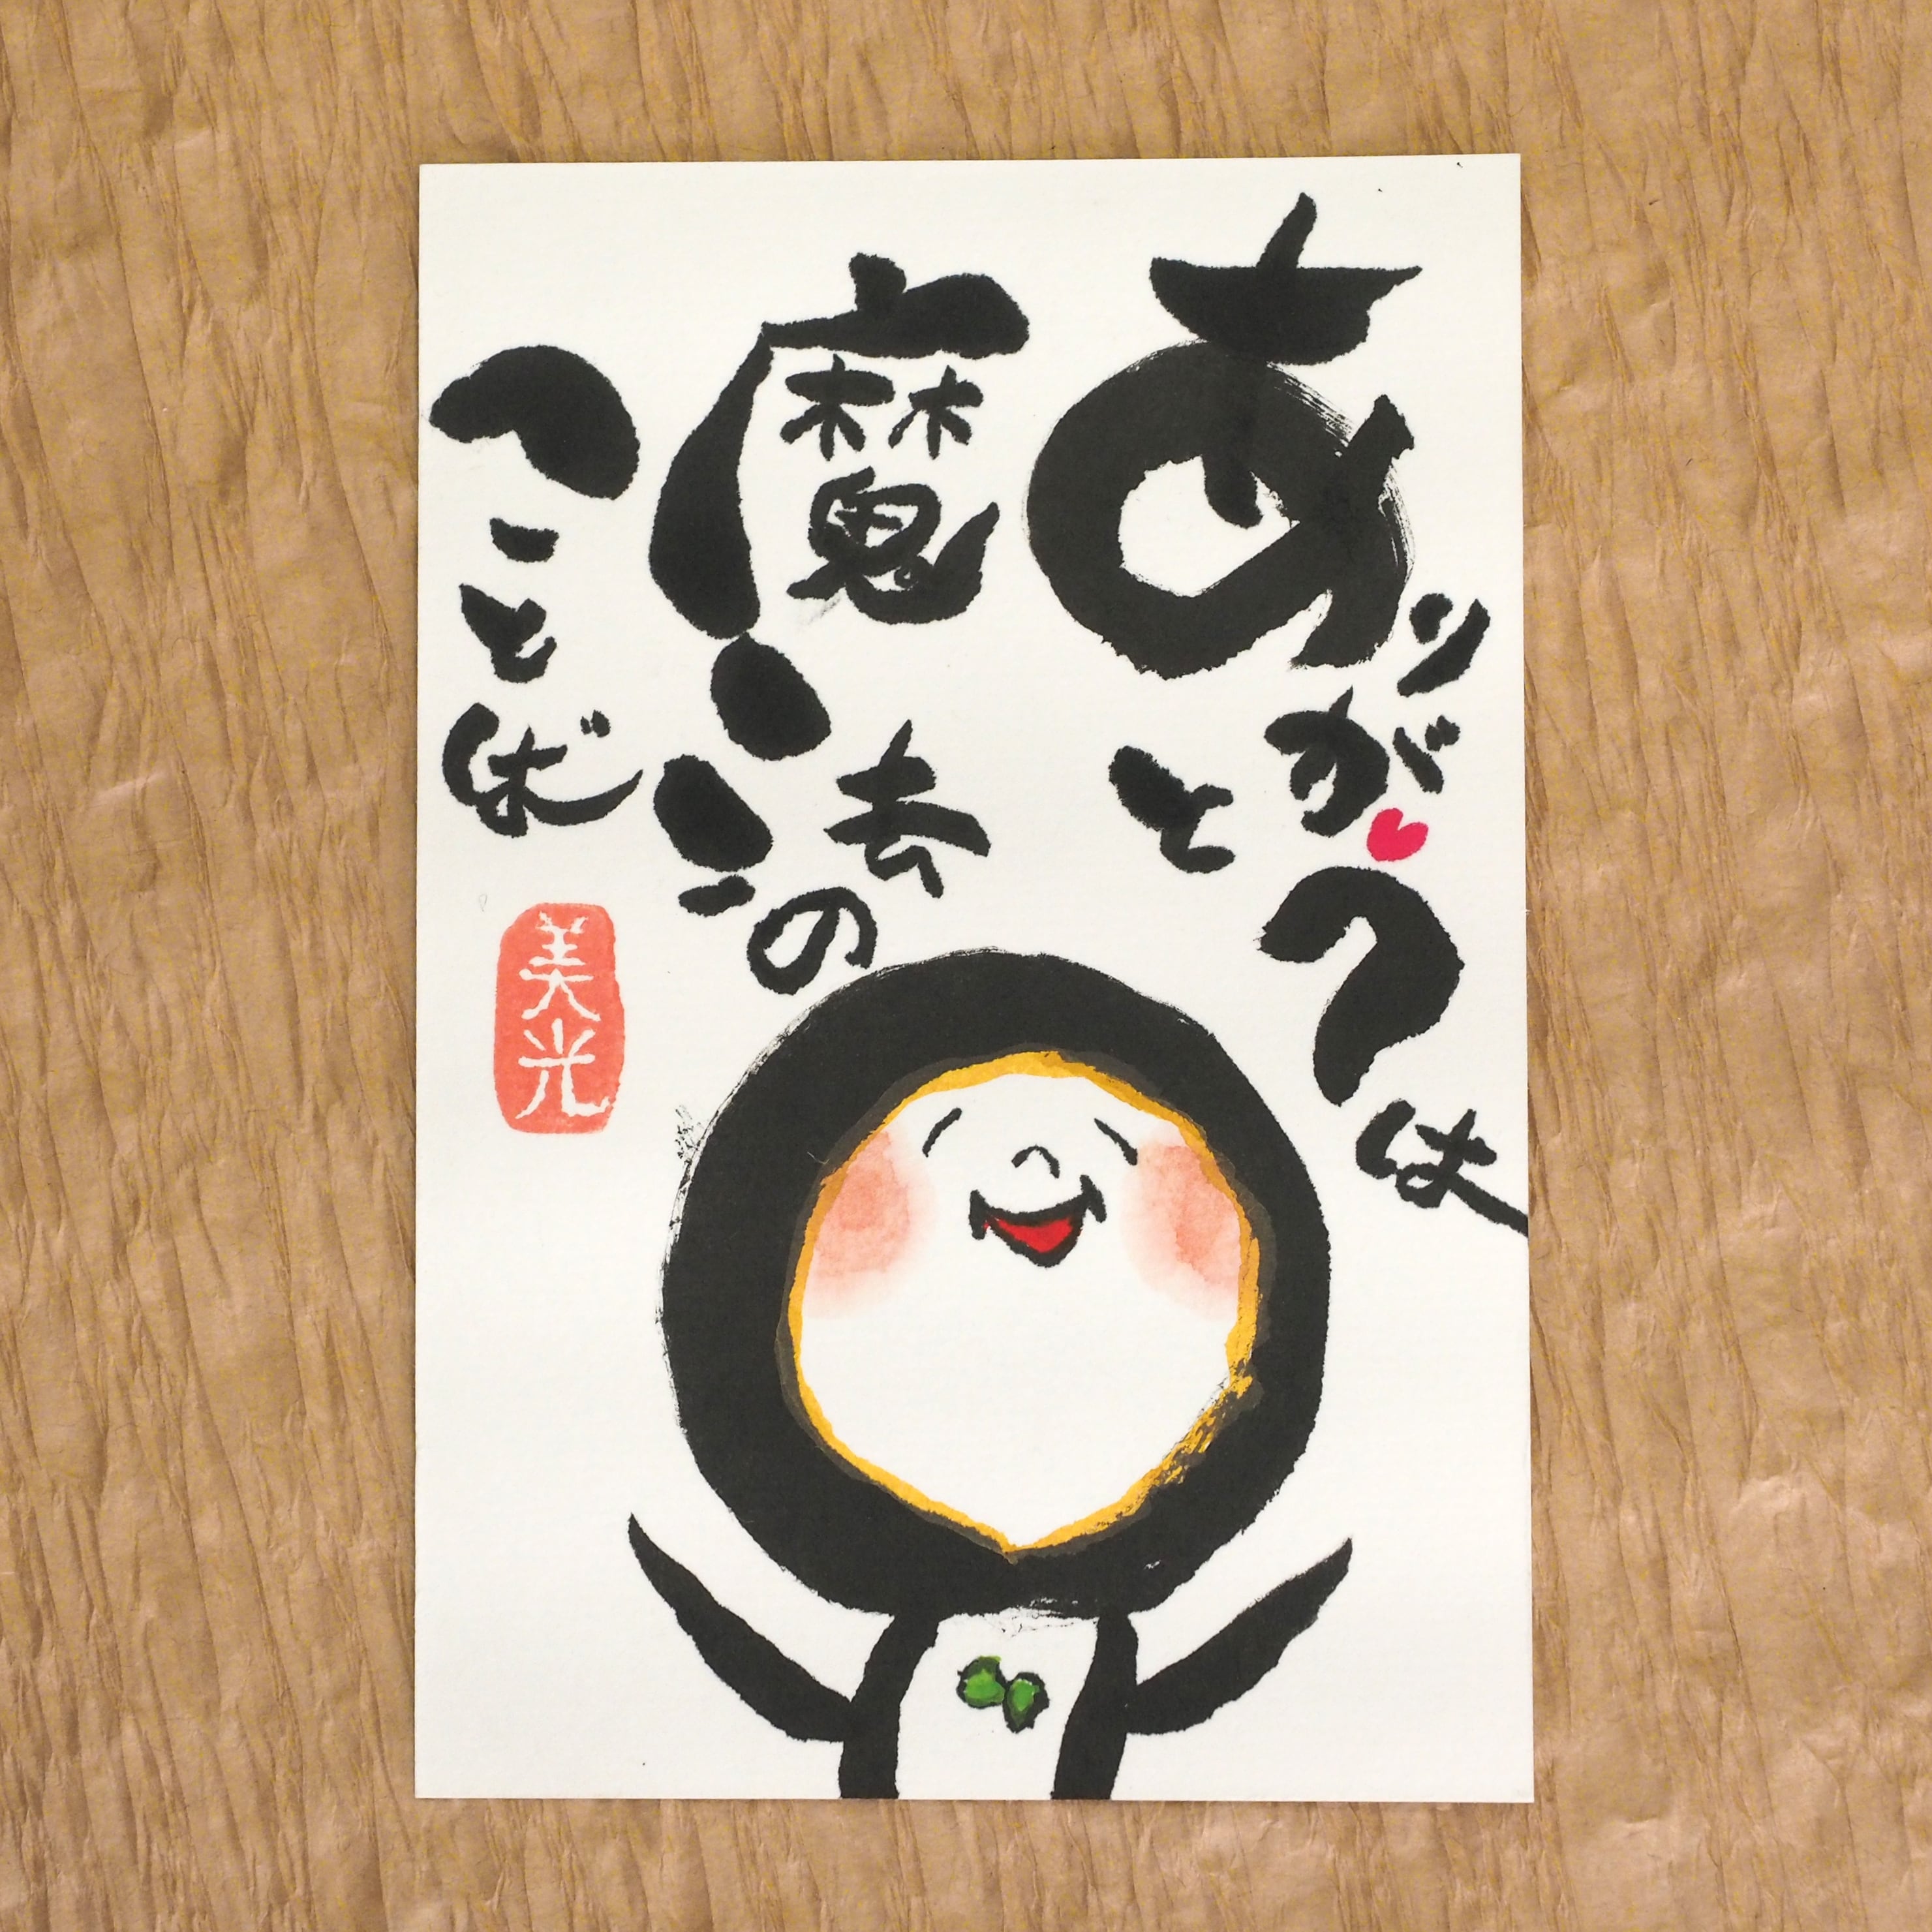 ありがとうは
魔法の
ことば
美光